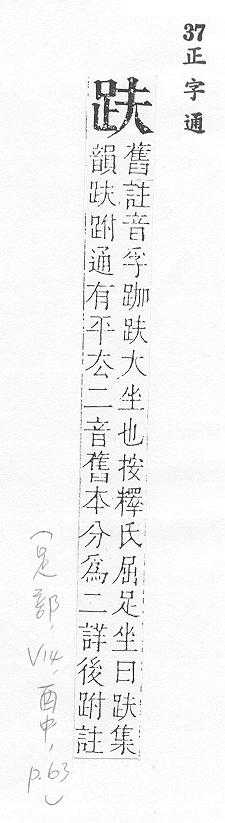 37正字通
趺
舊註音孚跏趺大坐也按釋氏屈足坐曰趺集
韻趺跗通有平厺二音舊本分爲二詳後跗註
(足部，V14，酉中，p.63)